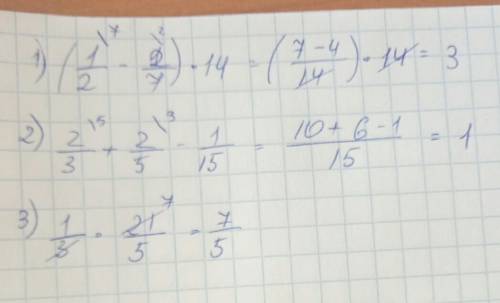 1) (1/2 \7 - 2/7 \2) · 14 = ((7-4)/14) · 14 = 3
2) 2/3 \5 + 2/5 \3 - 1/15 = (10+6-1)/15 = 1
3) 1/3 · 21/5 7 = 7/5